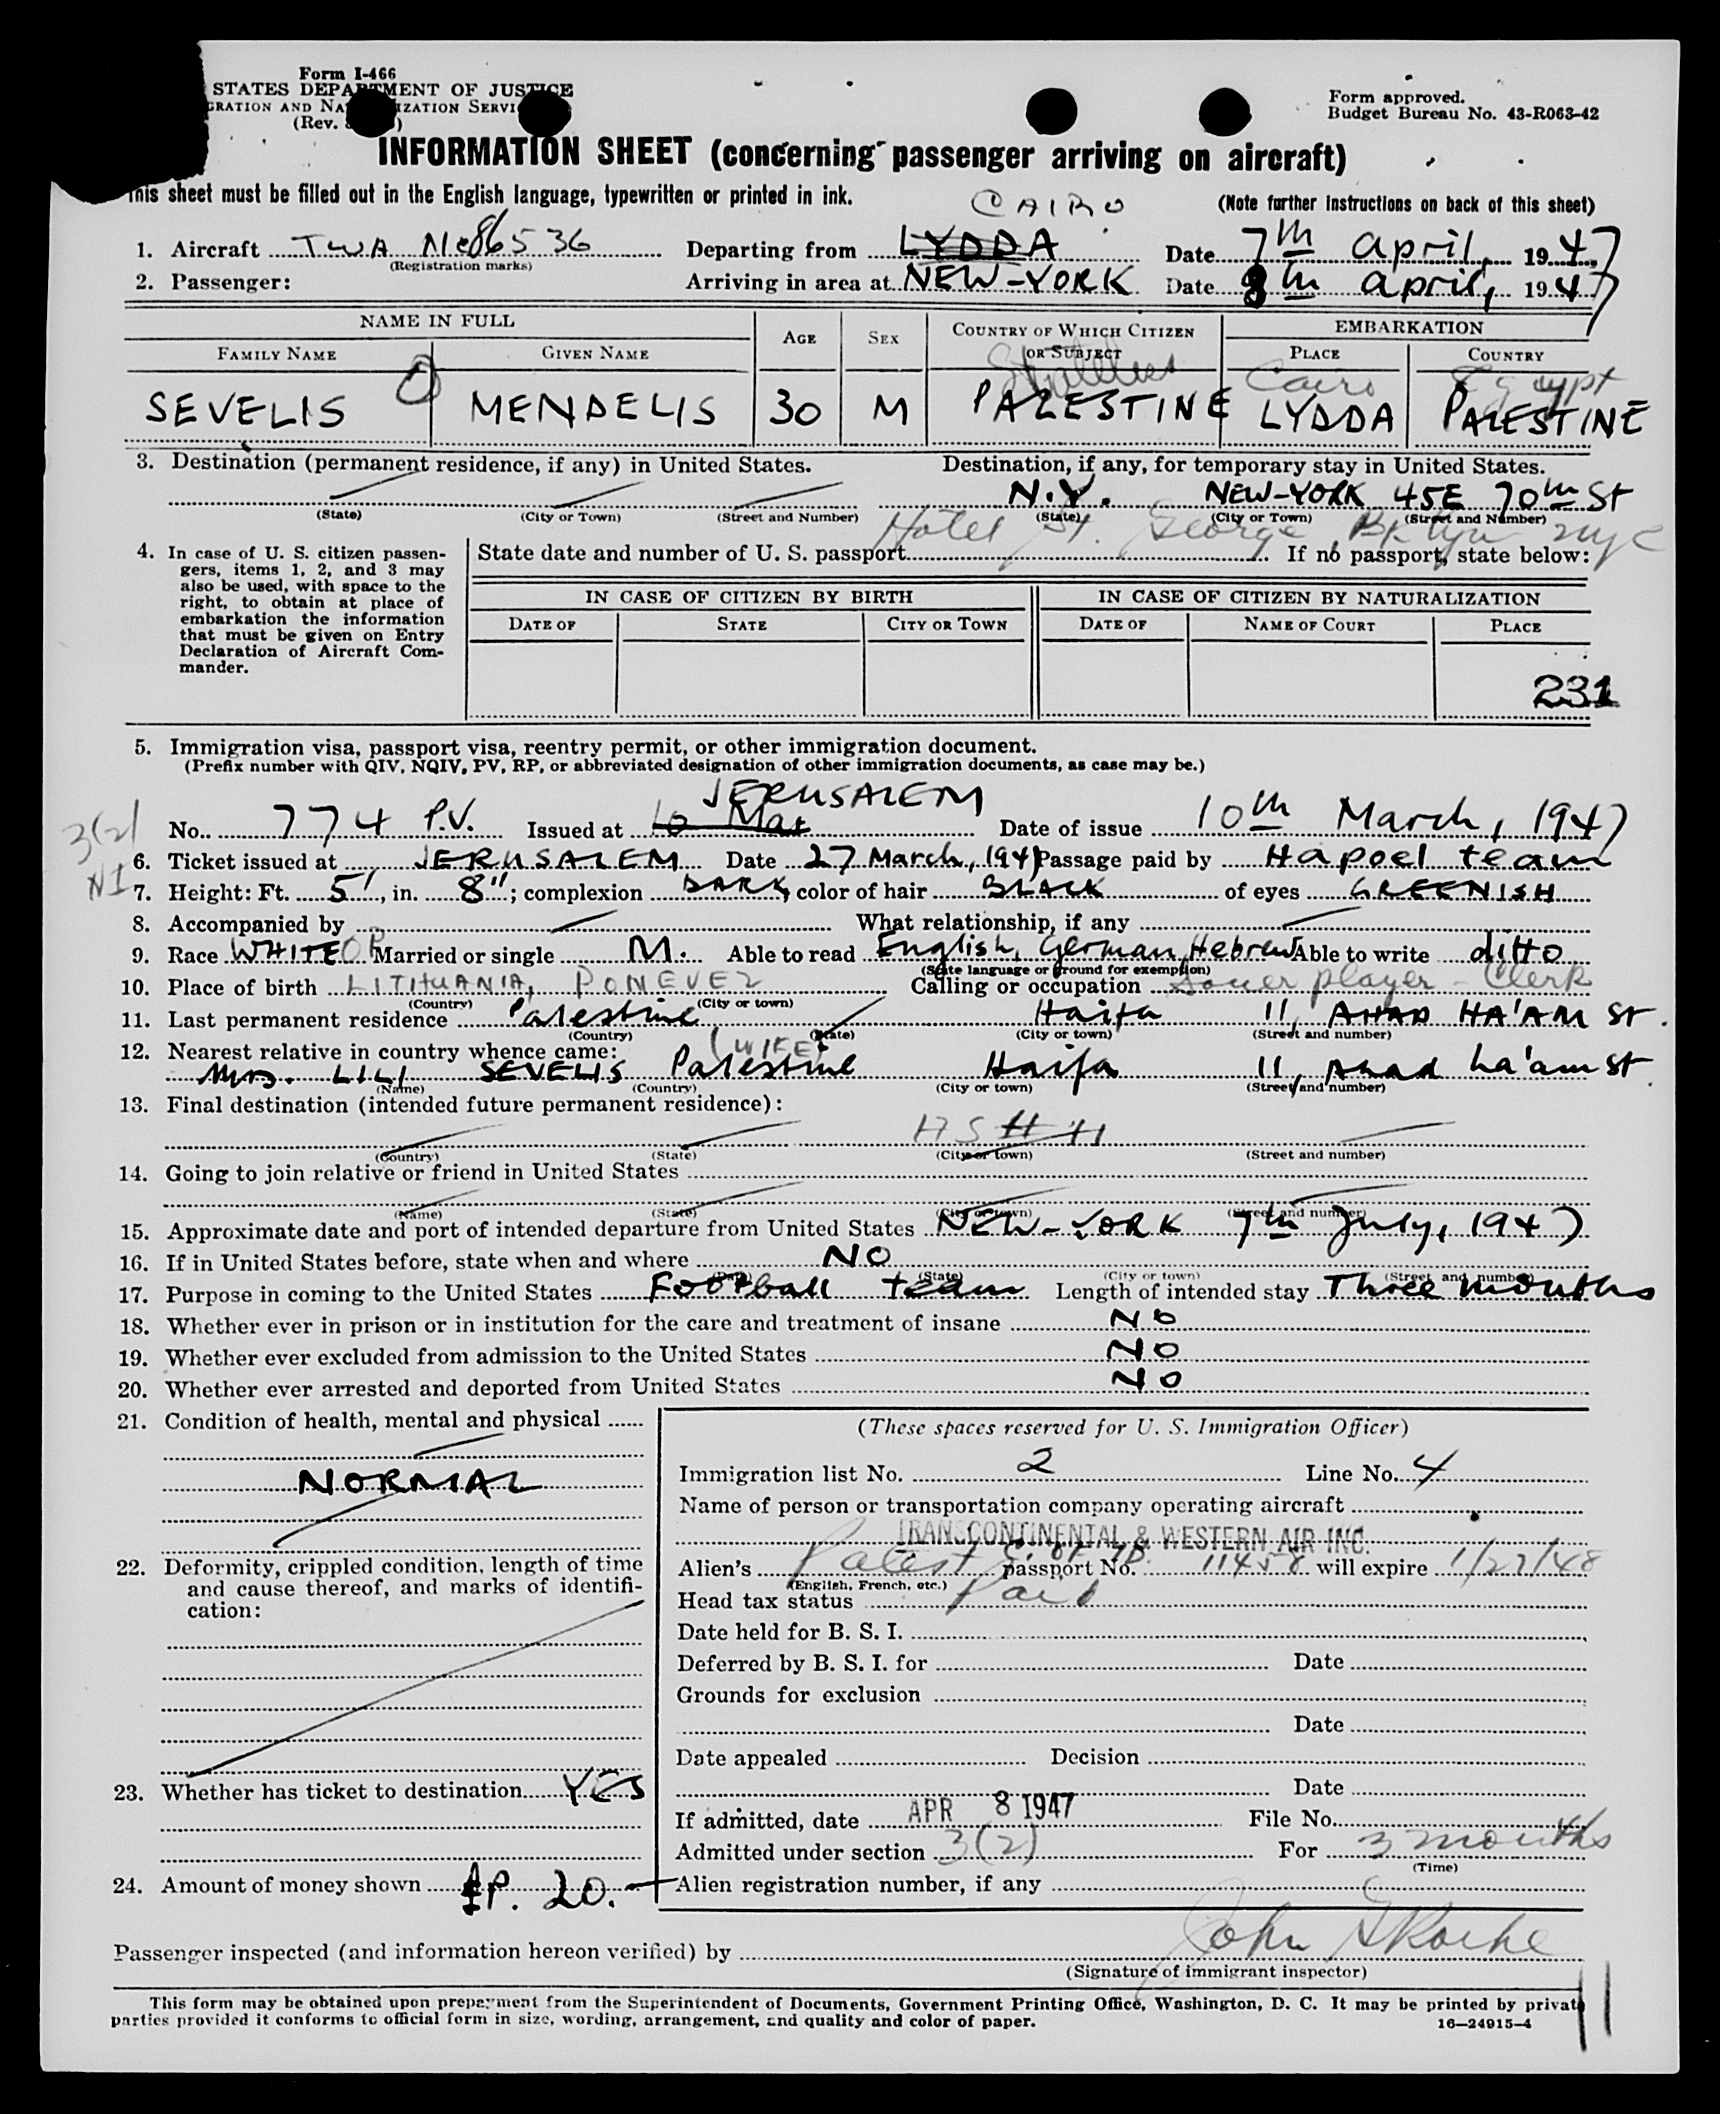 Form I-466
STATES DEPARTMENT OF JUSTICE
Form approved.
Budget Bureau No. 43-R063-42
(Rev.
INFORMATION SHEET (concerning passenger arriving on aircraft)
This sheet must be filled out in the English language, typewritten or printed in ink.
(Note further instructions on back of this sheet)
CAIRO
1. Aircraft TWA Nc86536 Departing from LYDDA Date 7th april, 1947
(Registration marks)
2. Passenger: Arriving in area at NEW-YORK Date 8th april, 1947
NAME IN FULL AGE SEX COUNTRY OF WHICH CITIZEN OR SUBJECT EMBARKATION
FAMILY NAME GIVEN NAME PLACE COUNTRY
Cairo Egypt
SEVELIS MENDELIS 30 M PALESTINE LYDDA PALESTINE
3. Destination (permanent residence, if any) in United States. Destination, if any, for temporary stay in United States.
N.Y. NEW-YORK 45E 70th St
(State) (City or Town) (Street and Number) (State) (City or Town) (Street and Number)
Hotel St. George, Bklyn NYC
4. In case of U. S. citizen passen-
gers, items 1, 2, and 3 may
also be used, with space to the
right, to obtain at place of
embarkation the information
that must be given on Entry
Declaration of Aircraft Com-
mander.
State date and number of U. S. passport If no passport, state below:
IN CASE OF CITIZEN BY BIRTH IN CASE OF CITIZEN BY NATURALIZATION
DATE OF STATE CITY OR TOWN DATE OF NAME OF COURT PLACE
231
5. Immigration visa, passport visa, reentry permit, or other immigration document.
(Prefix number with QIV, NQIV, PV, RP, or abbreviated designation of other immigration documents, as case may be.)
JERUSALEM
3(2)
No. 774 P.V. Issued at 10 Mar Date of issue 10th March, 1947
6. Ticket issued at JERUSALEM Date 27 March, 1947 Passage paid by Hapoel team
NI
7. Height: Ft. 5', in. 8"; complexion DARK, color of hair BLACK of eyes GREENISH
8. Accompanied by What relationship, if any
9. Race WHITE Married or single M. Able to read English, German, Hebrew Able to write ditto
(State language or ground for exemption)
10. Place of birth LITHUANIA, PONEVEZ Calling or occupation Soccer player - Clerk
(Country) (City or town)
11. Last permanent residence Palestine Haifa 11, AHAD HA'AM St.
(Country) (State) (City or town) (Street and number)
12. Nearest relative in country whence came: (WIFE)
Mrs. LILI SEVELIS Palestine Haifa 11, Ahad ha'am St.
(Name) (Country) (City or town) (Street and number)
13. Final destination (intended future permanent residence):
(Country) (State) (City or town) (Street and number)
14. Going to join relative or friend in United States
(Name) (State) (City or town) (Street and number)
15. Approximate date and port of intended departure from United States NEW-YORK 7th July, 1947
16. If in United States before, state when and where NO
(State) (City or town) (Street and number)
17. Purpose in coming to the United States Football team Length of intended stay Three months
18. Whether ever in prison or in institution for the care and treatment of insane NO
19. Whether ever excluded from admission to the United States NO
20. Whether ever arrested and deported from United States NO
21. Condition of health, mental and physical
NORMAL
22. Deformity, crippled condition, length of time
and cause thereof, and marks of identifi-
cation:
23. Whether has ticket to destination YES
24. Amount of money shown £P. 20.-
(These spaces reserved for U. S. Immigration Officer)
Immigration list No. 2 Line No. 4
Name of person or transportation company operating aircraft
TRANSCONTINENTAL & WESTERN AIR INC.
C. of ID.
Alien's Palest passport No. 11458 will expire 1/27/48
(English, French, etc.)
Head tax status Paid
Date held for B. S. I.
Deferred by B. S. I. for Date
Grounds for exclusion
Date
Date appealed Decision
Date
If admitted, date APR 8 1947 File No.
Admitted under section 3(2) For 3 months
(Time)
Alien registration number, if any
Passenger inspected (and information hereon verified) by John
(Signature of immigrant inspector)
This form may be obtained upon prepayment from the Superintendent of Documents, Government Printing Office, Washington, D. C. It may be printed by private
parties provided it conforms to official form in size, wording, arrangement, and quality and color of paper.
16—24915-4